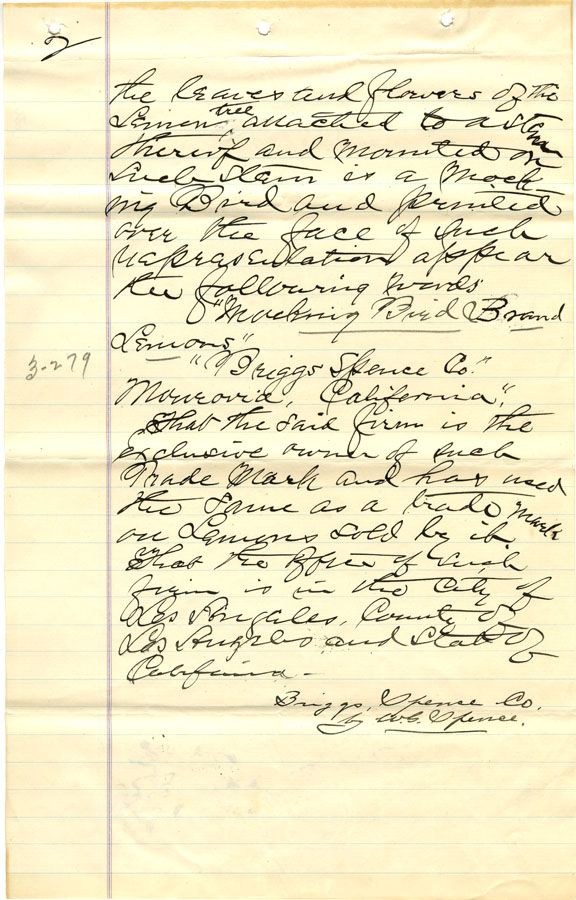 2
the leaves and flowers of the
Lemon tree attached to a stem
thereof and mounted on
such stem is a Mock-
ing Bird and printed
over the face of such
representation appear
the following words
"Mocking Bird Brand
Lemons"
3-279
"Briggs Spence Co."
Monrovia, California",
That the said firm is the
exclusive owner of such
Trade Mark and has used
the same as a trade mark
on Lemons sold by it.
That the office of such
firm is in the City of
Los Angeles, County of
Los Angeles and State of
California -
Briggs, Spence Co.
by W.G. Spence.